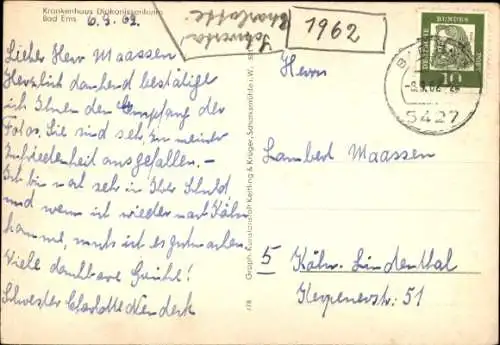 Krankenhaus Diakonissenheim
Bad Ems
6.9.62
Schwester
Charlotte
1962
Lieber Herr Maassen
Herzlich dankend bestätige
ich Ihnen den Empfang der
Fotos. Sie sind sehr zu meiner
Zufriedenheit ausgefallen. –
Ich bin noch sehr in Ihrer Schuld,
und wenn ich wieder nach Köln
komme, muß ich es gutmachen.
Viele dankbare Grüße!
Schwester Charlotte
Graph. Kunstanstalt Kettling & Krüger, Schalksmühle i. W.
DEUTSCHE BUNDESPOST
10
5427
Herrn
Lambert Maassen
5 Köln-Lindenthal
Kerpenerstr. 51